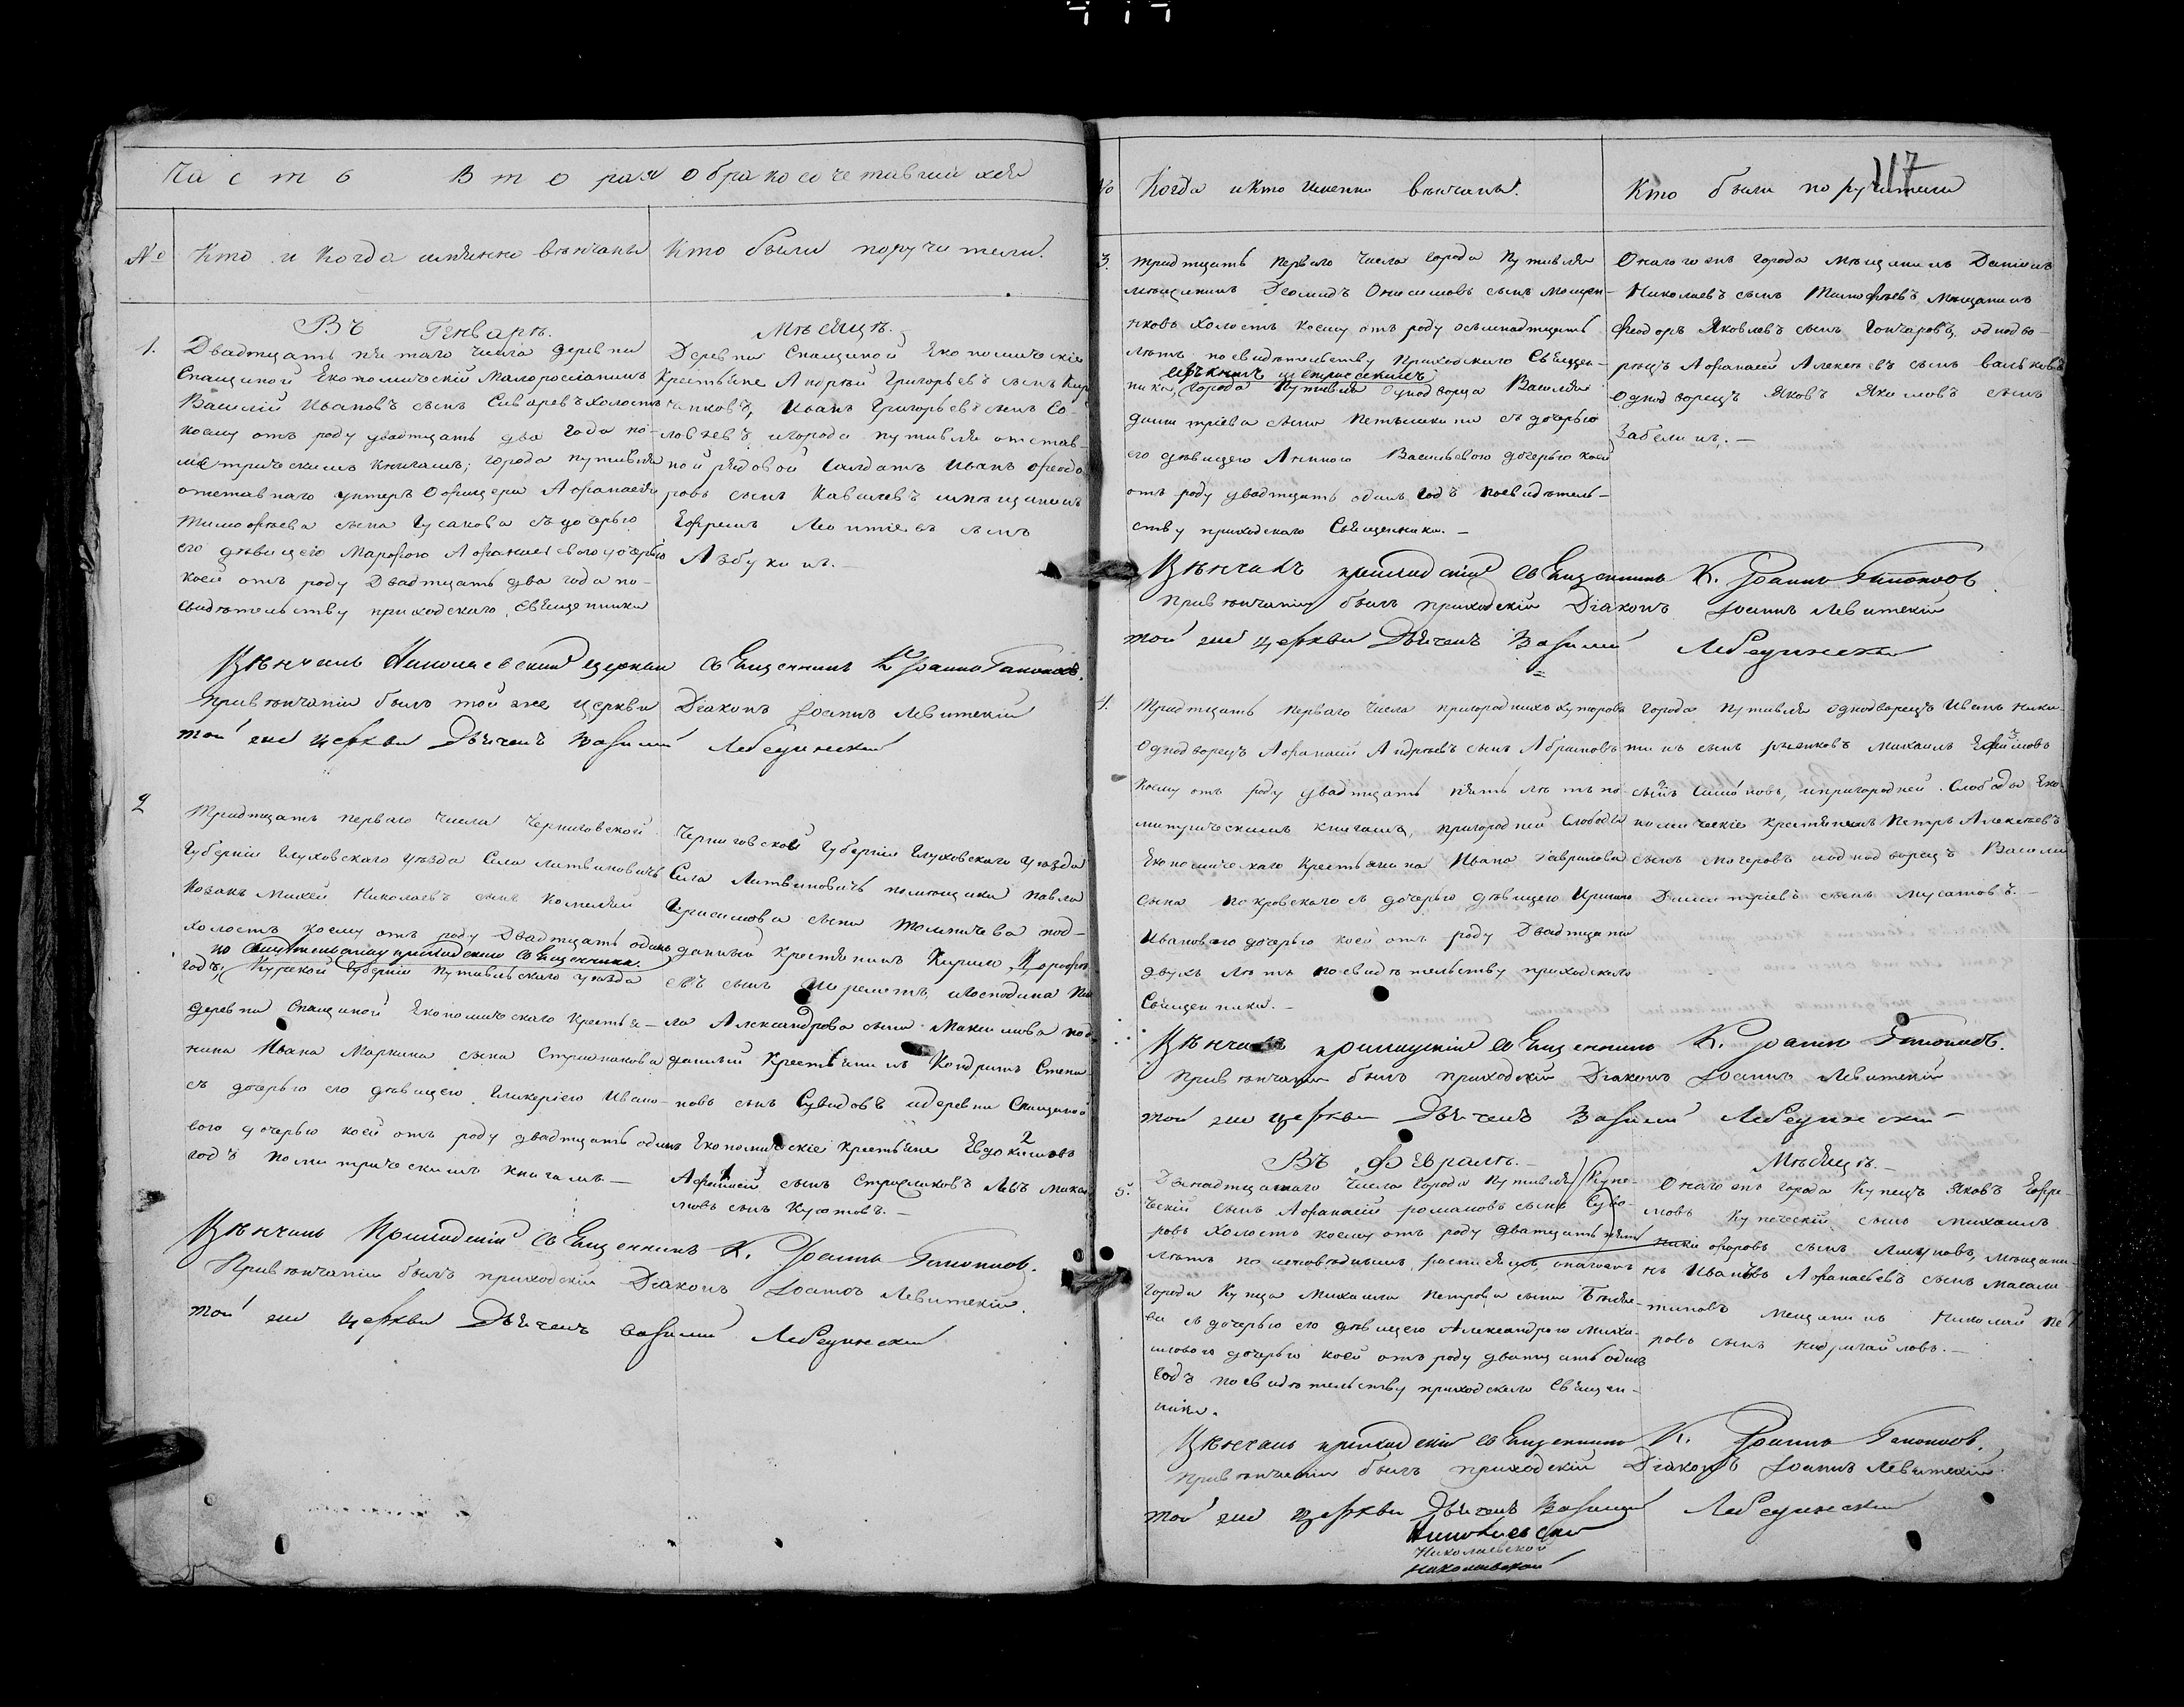 Часть Вторая о бракосочетавшихся
№ Кто и когда имянно венчаны
Кто были поручители.
Въ Генваре.
Месяце.
1.
Двадцать пятаго числа деревни
Спащиной Економическій Малороссіянинъ
Василій Ивановъ сынъ холостъ
коему отъ роду двадцать два года по
метрическимъ книгамъ; города Путивля
отставнаго унтеръ Офицера Афанасія
Тимофеева сына Гусакова съ дочерью
его девицею Марфою Афанасьевою дочерью
коей отъ роду Двадцать два года по-
свидетельству приходскаго Священника
Деревни Спащиной Економическіе
Крестьяне Андрей Григорьевъ сынъ
Иванъ Григорьевъ сынъ Со-
ловьевъ, и города Путивля отстав-
ной рядовой Салдатъ Иванъ Феодо
ровъ сынъ Кавалевъ и мещанинъ
Ефремъ Леонтіевъ сынъ
Азбукинъ.-
Венчалъ Николаевской церкви Священникъ К. Іоаннъ Гапоновъ.
При венчаніи былъ той же Церкви Діаконъ Іоаннъ Левитскій
той же церкви Дьячекъ Василій Лебединскій
2
Тридцать перваго числа Черниговской
Губерніи Глуховскаго уезда Села Литвиновичъ
Козакъ Михей Николаевъ сынъ
холостъ коему отъ роду Двадцать одинъ
по свидетельству приходскаго Священника.
годъ, Курской Губерніи Путивльскаго уезда
деревни Спащиной Економическаго Крестья-
нина Ивана Маркина сына Стрижакова
съ дочерью его девицею Гликеріею Ивано-
вою дочерью коей отъ роду двадцать одинъ
годъ по метрическимъ книгамъ.-
Черниговской Губерніи Глуховскаго уезда
Села Литвиновичъ помещика Павла
Герасимова сына под-
данный крестьянинъ Кирило
сынъ Шереметъ, и господина
Александрова сына Максимова под-
данный Крестьянинъ Кондратъ Степа
новъ сынъ Сувидовъ и деревни Спащиной
Економическіе крестьяне Евдокимовъ 2
Афанасій 1 сынъ Стрижаковъ Левъ
сынъ Кустовъ.-
Венчалъ Приходскій Священникъ К. Іоаннъ Гапоновъ.
При венчаніи былъ приходскій Діаконъ Іоаннъ Левитскій.
той же церкви Дьячекъ Василій Лебединскій
117
№ Когда и кто именно венчаны.
Кто были поручители
3.
Тридцать перваго числа города Путивля
мещанинъ Діомидъ Онисимовъ сынъ
холостъ коему отъ роду осемнадцать
летъ по свидетельству Приходскаго Священ-
ника, города Путивля Однодворца Василія
Димитріева сына съ дочерью
его девицею Анною Васильевою дочерью коей
отъ роду двадцать одинъ годъ по свидетель-
ству приходскаго Священника.-
Онаго жъ города мещанинъ Даніилъ
Николаевъ сынъ Тимофеевъ, мещанинъ
Феодоръ Яковлевъ сынъ Гончаровъ, однодво-
рецъ Афанасій Алексеевъ сынъ Вальковъ
Однодворецъ Яковъ Якимовъ сынъ
Забелинъ.-
Венчалъ приходскій Священникъ К. Іоаннъ Гапоновъ
При венчаніи былъ приходскій Діаконъ Іоаннъ Левитскій
той же церкви Дьячекъ Василій Лебединскій
4.
Тридцать перваго числа пригородныхъ хуторовъ
Однодворецъ Афанасій Андреевъ сынъ Абрамовъ
коему отъ роду двадцать пять летъ по
митрическимъ книгамъ, пригородней Слободы
Економическаго Крестьянина Ивана Гаврилова
сына Покровскаго съ дочерью девицею Ириною
Ивановою дочерью коей отъ роду Двадцати
двухъ летъ по свидетельству приходскаго
Священника.-
города Путивля однодворецъ Иванъ Ники-
тинъ сынъ Рыжковъ Михаилъ Ефимовъ
сынъ и пригородней Слободы Еко
номическіе крестьянинъ Петръ Алексеевъ
сынъ и однодворецъ Василій
Димитріевъ сынъ Мусатовъ.-
Венчалъ приходскій Священникъ К. Іоаннъ Гапоновъ.
При венчаніи былъ приходскій Діаконъ Іоаннъ Левитскій
той же церкви Дьячекъ Василій Лебединскій
Въ Феврале.-
Месяце.-
5.
числа города Путивля Купе-
ческій сынъ Афанасій Романовъ сынъ Суво-
ровъ холостъ коему отъ роду двадцать пять
летъ по исповеднымъ росписямъ,
города Купца Михаила Петрова сына
съ дочерью его девицею Александрою Миха-
иловою дочерью коей отъ роду дватцать одинъ
годъ по свидетельству приходскаго Священ-
ника.
Онаго жъ города Купецъ Яковъ Ефре-
мовъ Купеческій сынъ Михаилъ
Никифоровъ сынъ мещани-
нъ Ивановъ Афанасьевъ сынъ
мещанинъ Николай Пет
ровъ сынъ
Венчалъ приходскій Священникъ К. Іоаннъ Гапоновъ.
При венчаніи былъ приходскій Діаконъ Іоаннъ Левитскій.
той же церкви Дьячекъ Василій Лебединскій
Николаевской
Николаевской
Николаевской